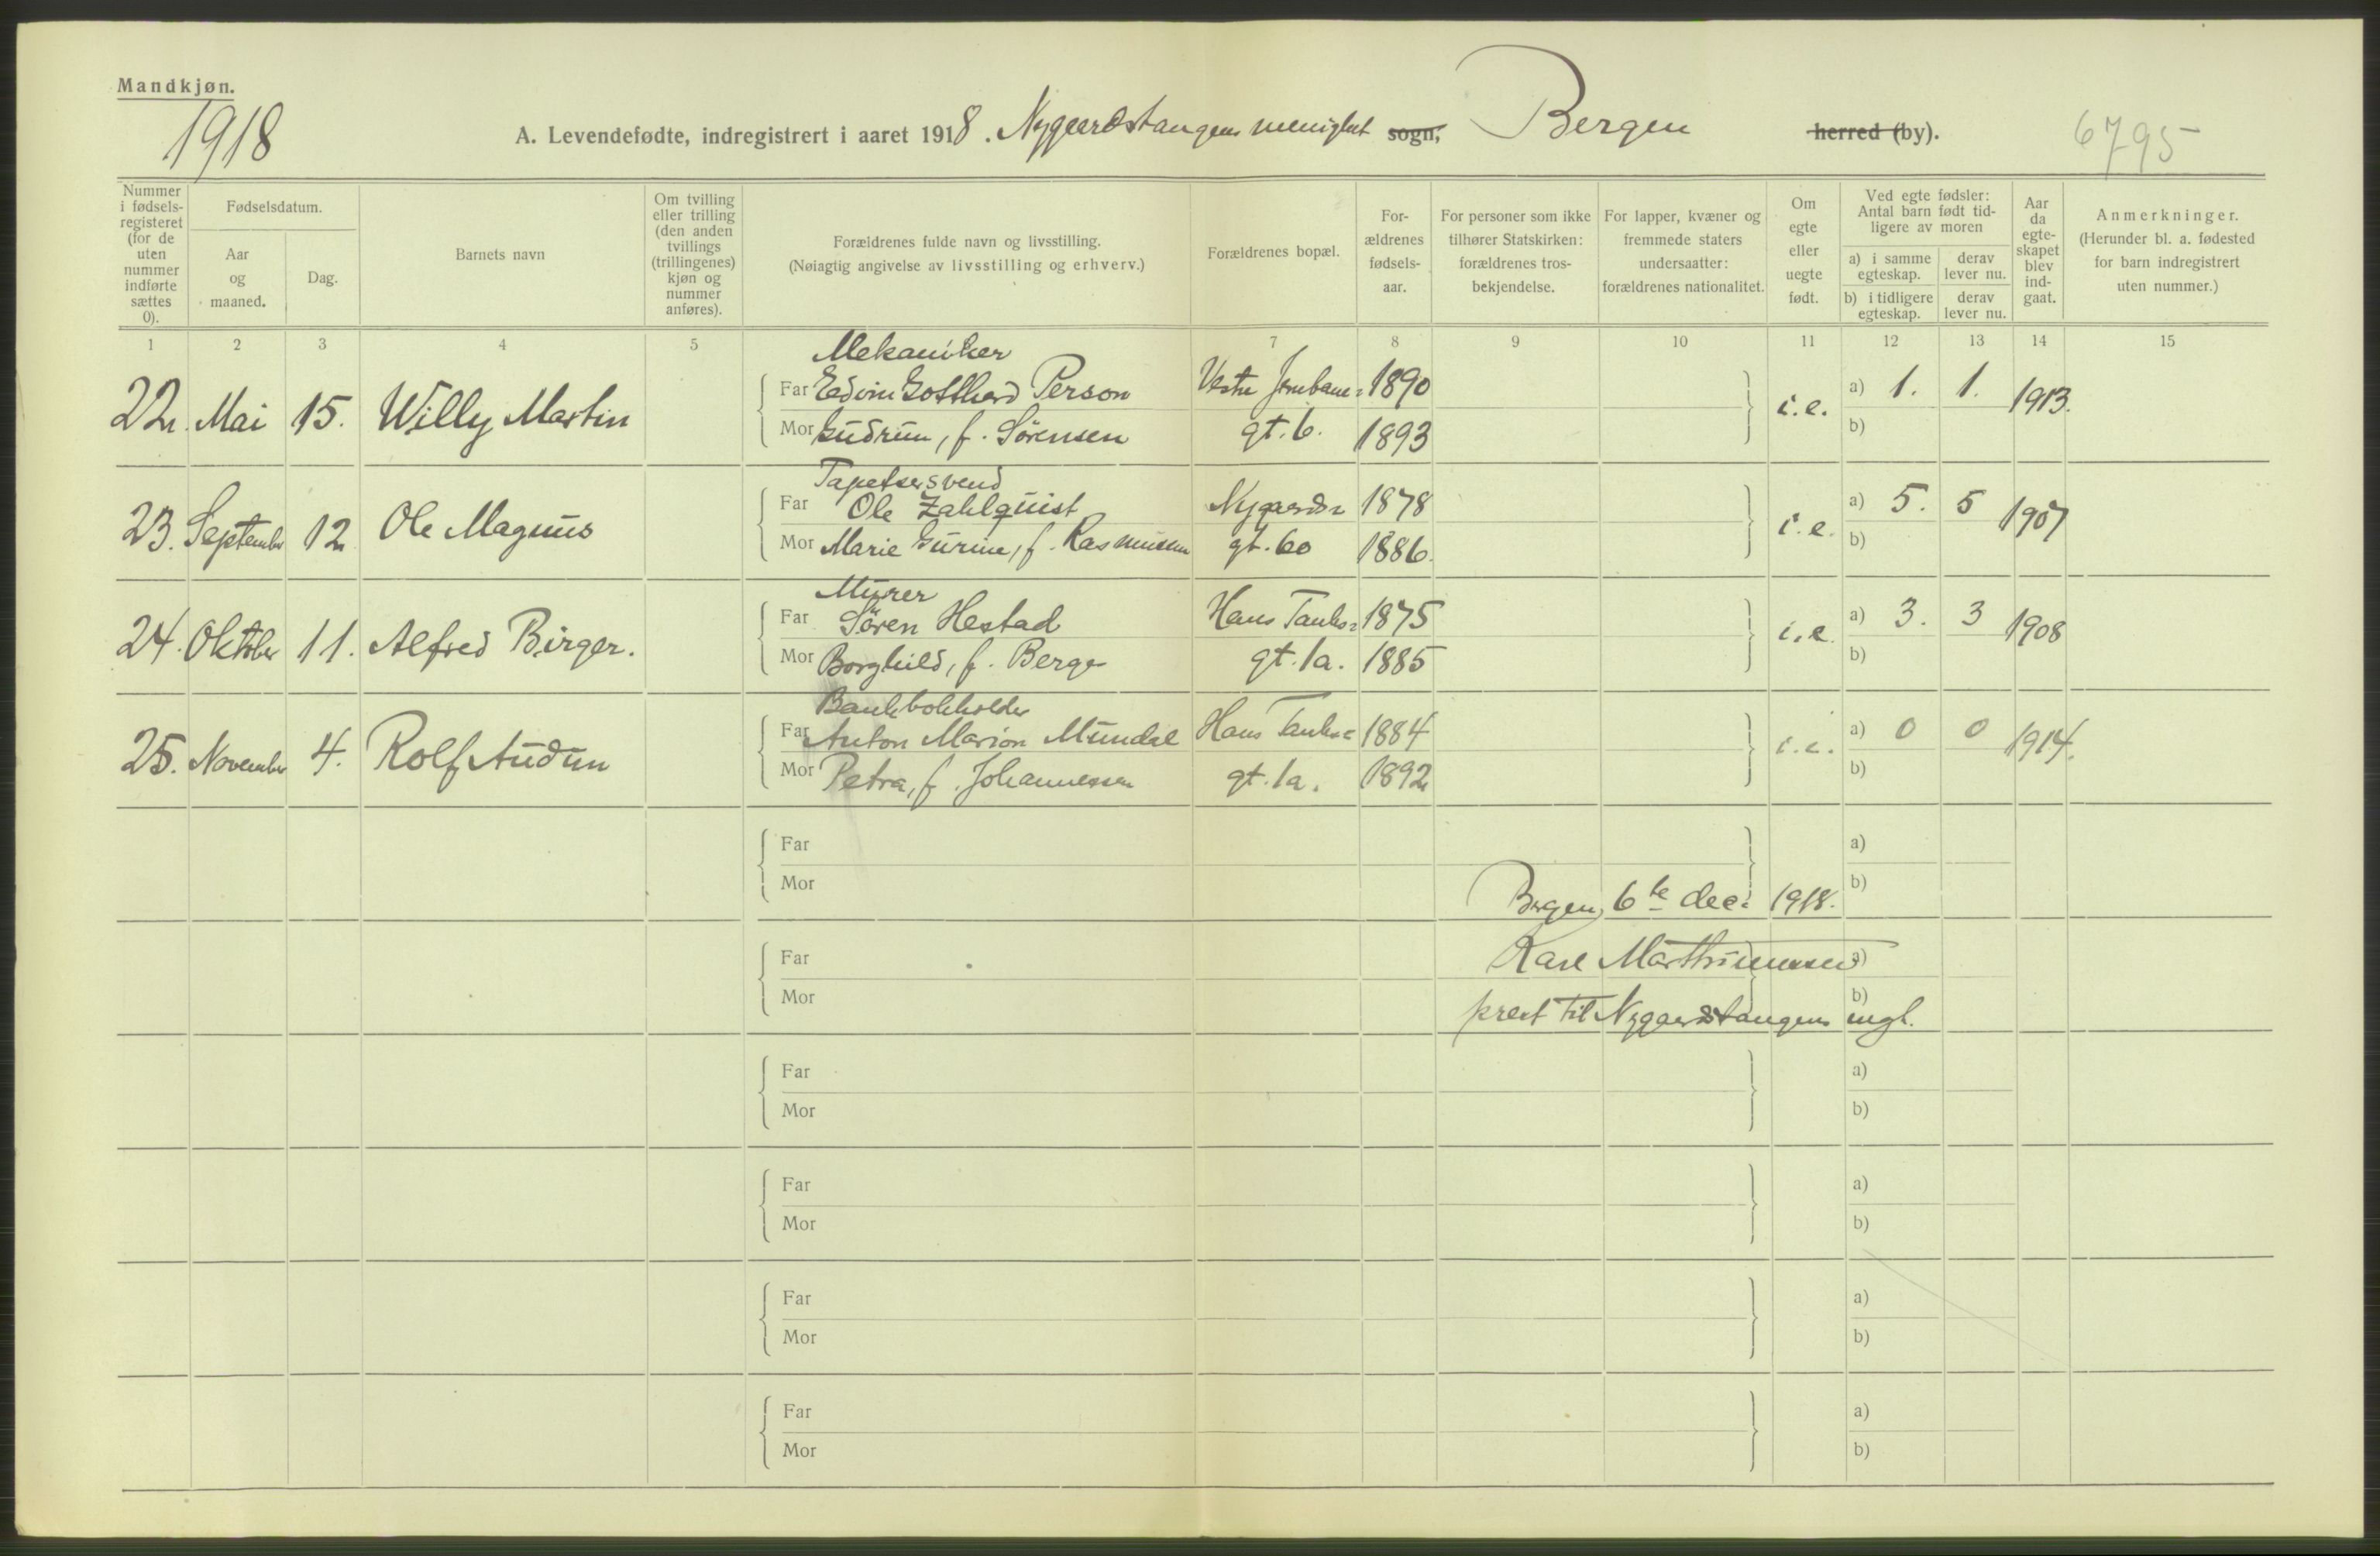 Mandkjøn.
1918
A. Levendefødte, indregistrert i aaret 1918. Nygaardstangens menighet sogn, Bergen herred (by).
6795
Nummer i fødsels-registeret (for de uten nummer indførte sættes 0).
Fødselsdatum.
Aar og maaned.
Dag.
Barnets navn
Om tvilling eller trilling (den anden tvillings (trillingenes) kjøn og nummer anføres).
Forældrenes fulde navn og livsstilling.
(Nøiagtig angivelse av livsstilling og erhverv.)
Forældrenes bopæl.
For-ældrenes fødsels-aar.
For personer som ikke tilhører Statskirken: forældrenes tros-bekjendelse.
For lapper, kvæner og fremmede staters undersaatter: forældrenes nationalitet.
Om egte eller uegte født.
Ved egte fødsler: Antal barn født tid-ligere av moren
a) i samme egteskap.
derav lever nu.
b) i tidligere egteskap.
derav lever nu.
Aar da egte-skapet blev ind-gaat.
Anmerkninger.
(Herunder bl. a. fødested for barn indregistrert uten nummer.)
1 2 3 4 5 7 8 9 10 11 12 13 14 15
Mekaniker
22. Mai 15. Willy Martin Far Edvin Gotthard Person Vestre Jernbane= 1890 i.e. a) 1. 1. 1913.
Mor Gudrun, f. Sørensen gt. 6. 1893 b)
Tapetsersvend
23. September 12 Ole Magnus Far Ole Zahlquist Nygaards= 1878 i.e. a) 5. 5 1907
Mor Marie Gurine, f. Rasmussen gt. 60 1886. b)
Murer
24. Oktober 11. Alfred Birger. Far Søren Hestad Hans Tanks= 1875 i.e. a) 3. 3 1908
Mor Borghild, f. Berge gt. 1a. 1885 b)
Bankbokholder
25. November 4. Rolf Audun Far Anton Marion Mundal Hans Tanks= 1884 i.e. a) 0 0 1914.
Mor Petra, f. Johannessen gt. 1a. 1892 b)
Far a)
Mor b)
Bergen, 6te dec: 1918.
Far a)
Karl Marthinussen
Mor b)
prest til Nygaardstangens mgh.
Far a)
Mor b)
Far a)
Mor b)
Far a)
Mor b)
Far a)
Mor b)